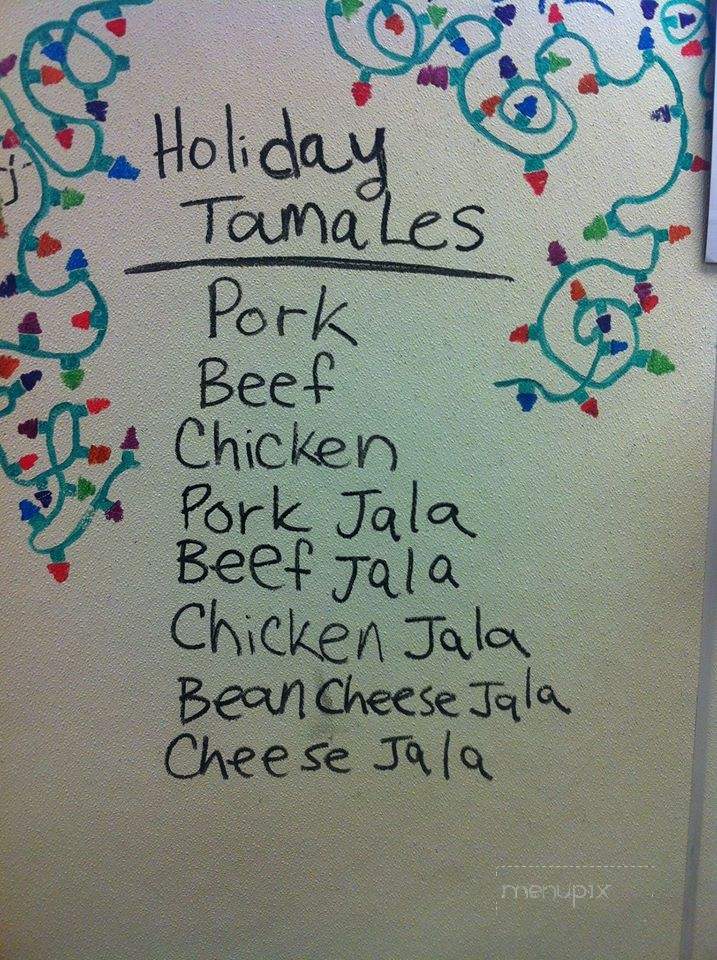 Holiday
Tamales
Pork
Beef
Chicken
Pork Jala
Beef Jala
Chicken Jala
Bean Cheese Jala
Cheese Jala
menupix